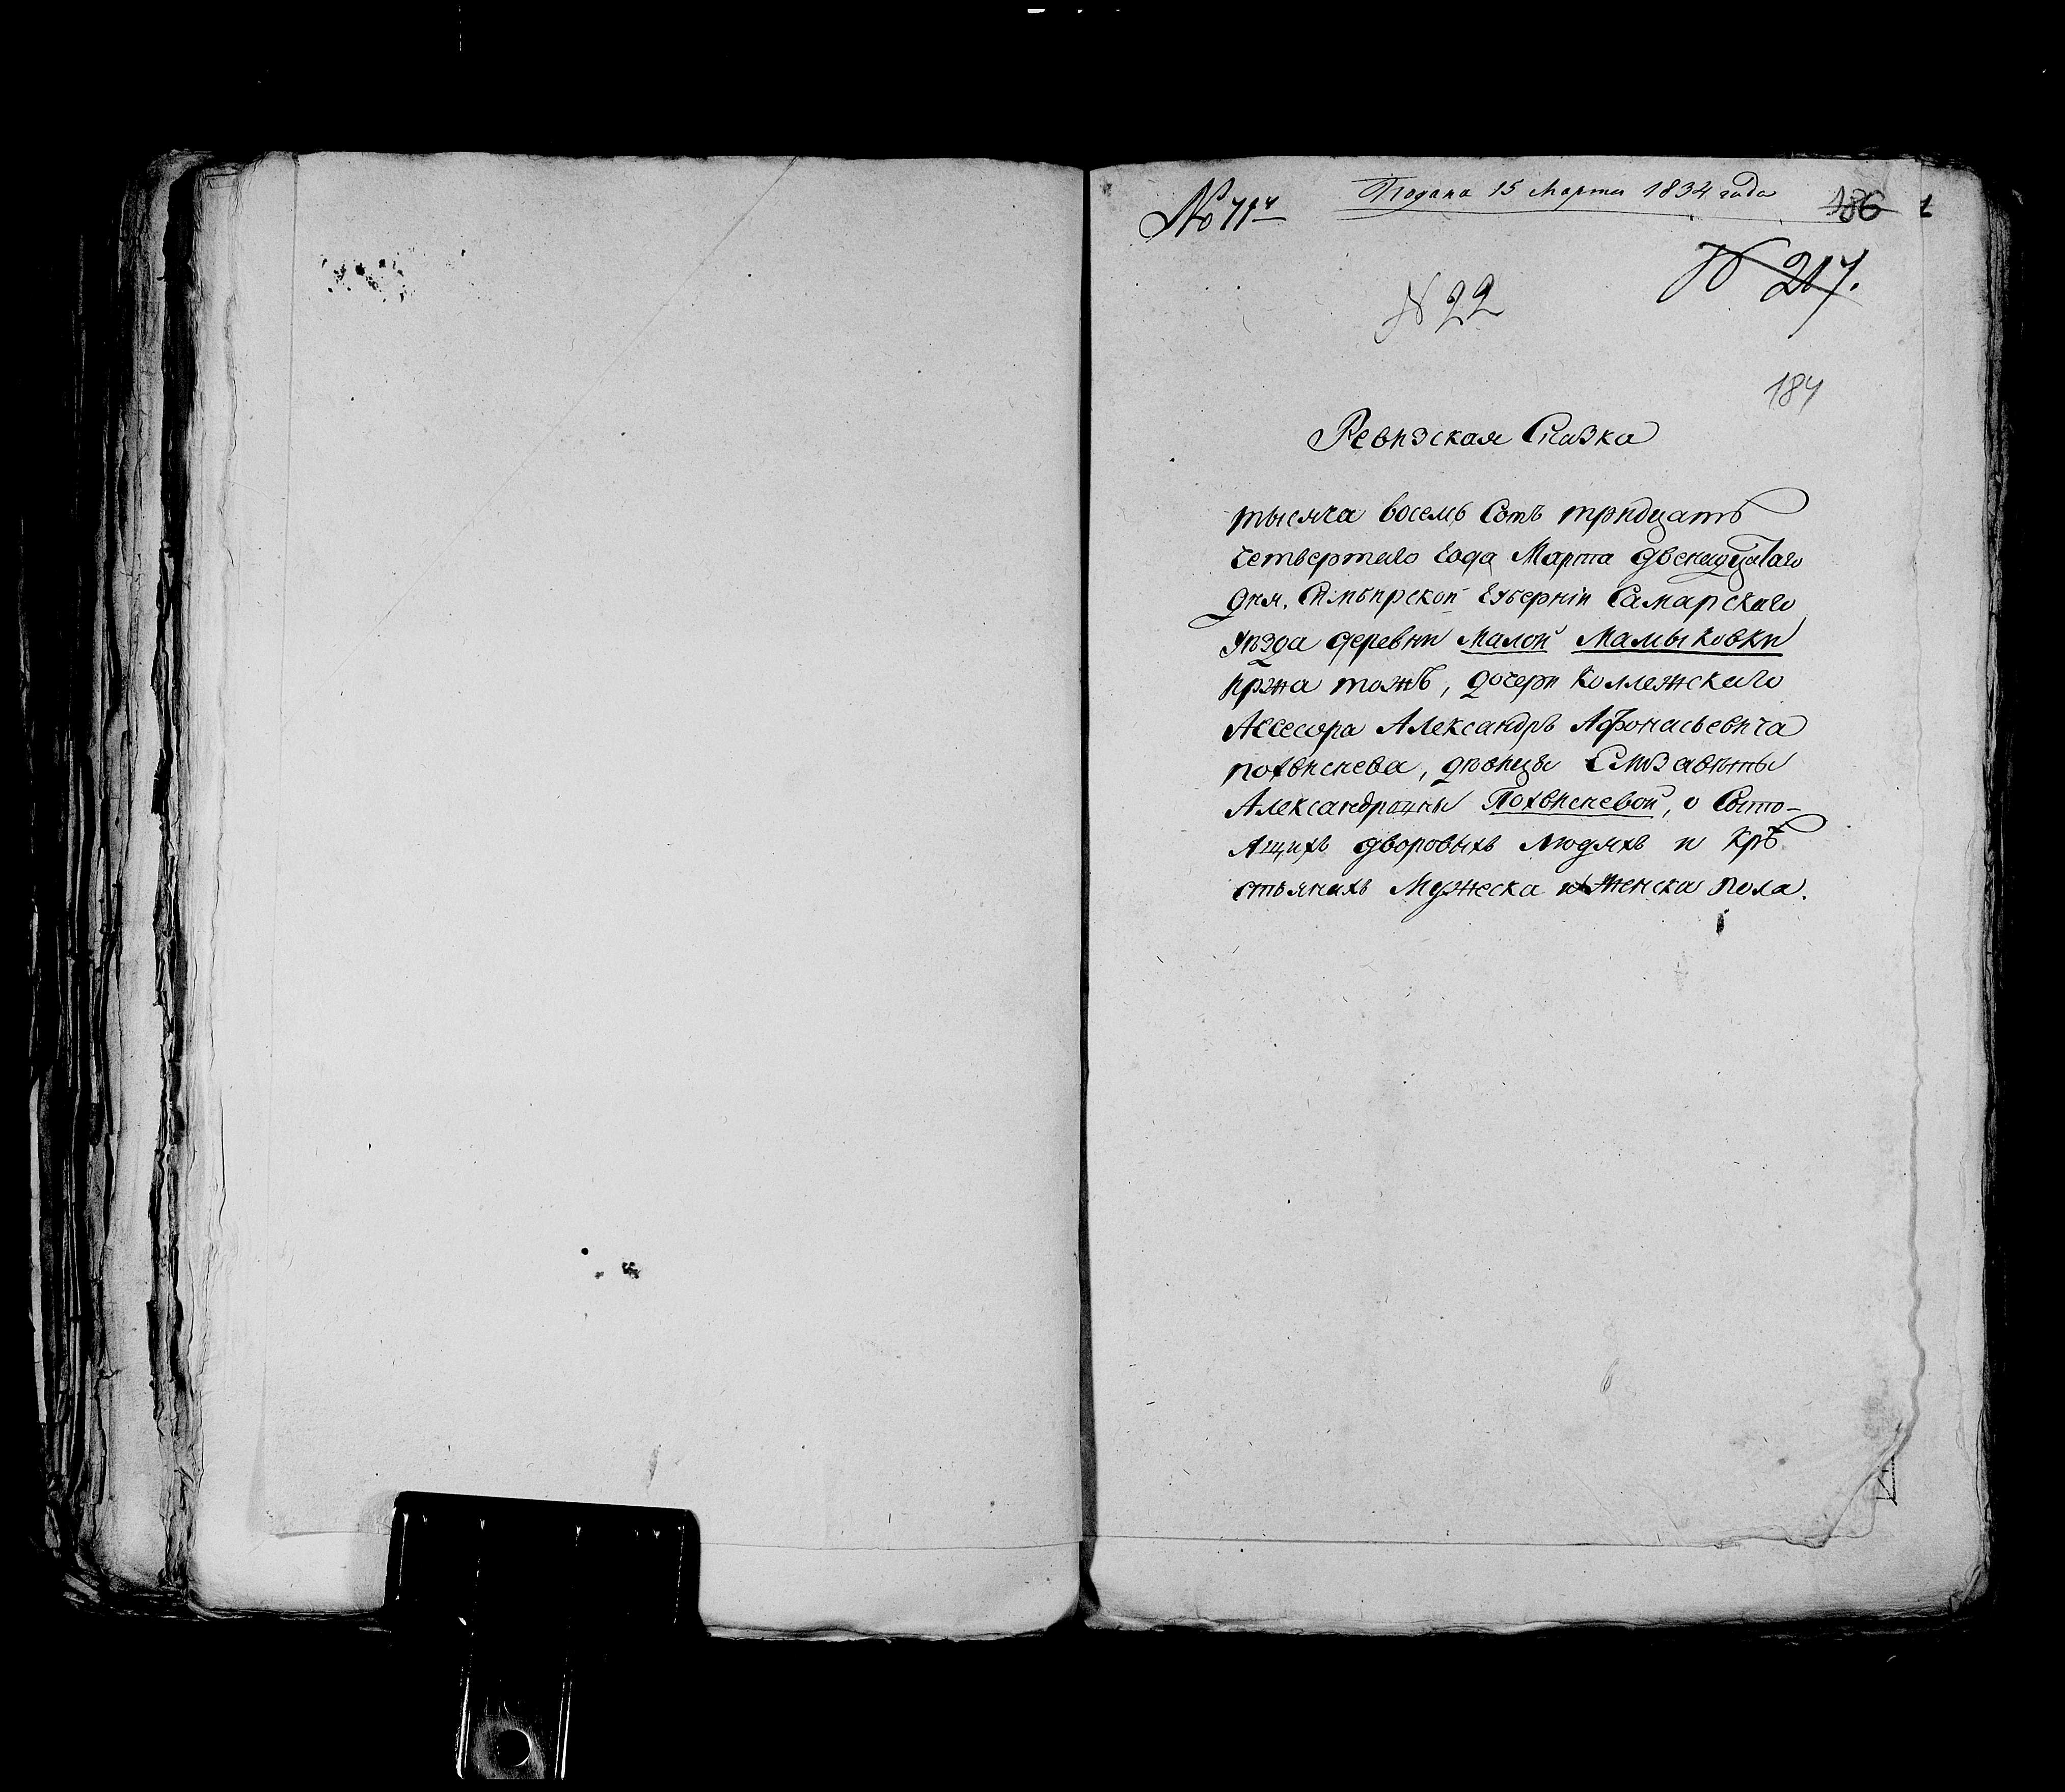 Подана 15 марта 1834 года
186 1
№ 217.
N 22
184
Ревизская Сказка
тысяча восемь Сотъ тридцать
четвертаго года Марта двенадцатаго
дня, Симбирской губерніи Самарскаго
уѣзда деревни Малой Мамыковки
Кряжа тожъ, дочери Коллежскаго
Ассесора Александръ Афонасьевича
похвиснева, дѣвицы Елизавѣты
Александровны Похвисневой, о Состо-
Ящихъ дворовыхъ людяхъ и Крѣ
стьянахъ Мужеска и женска пола.